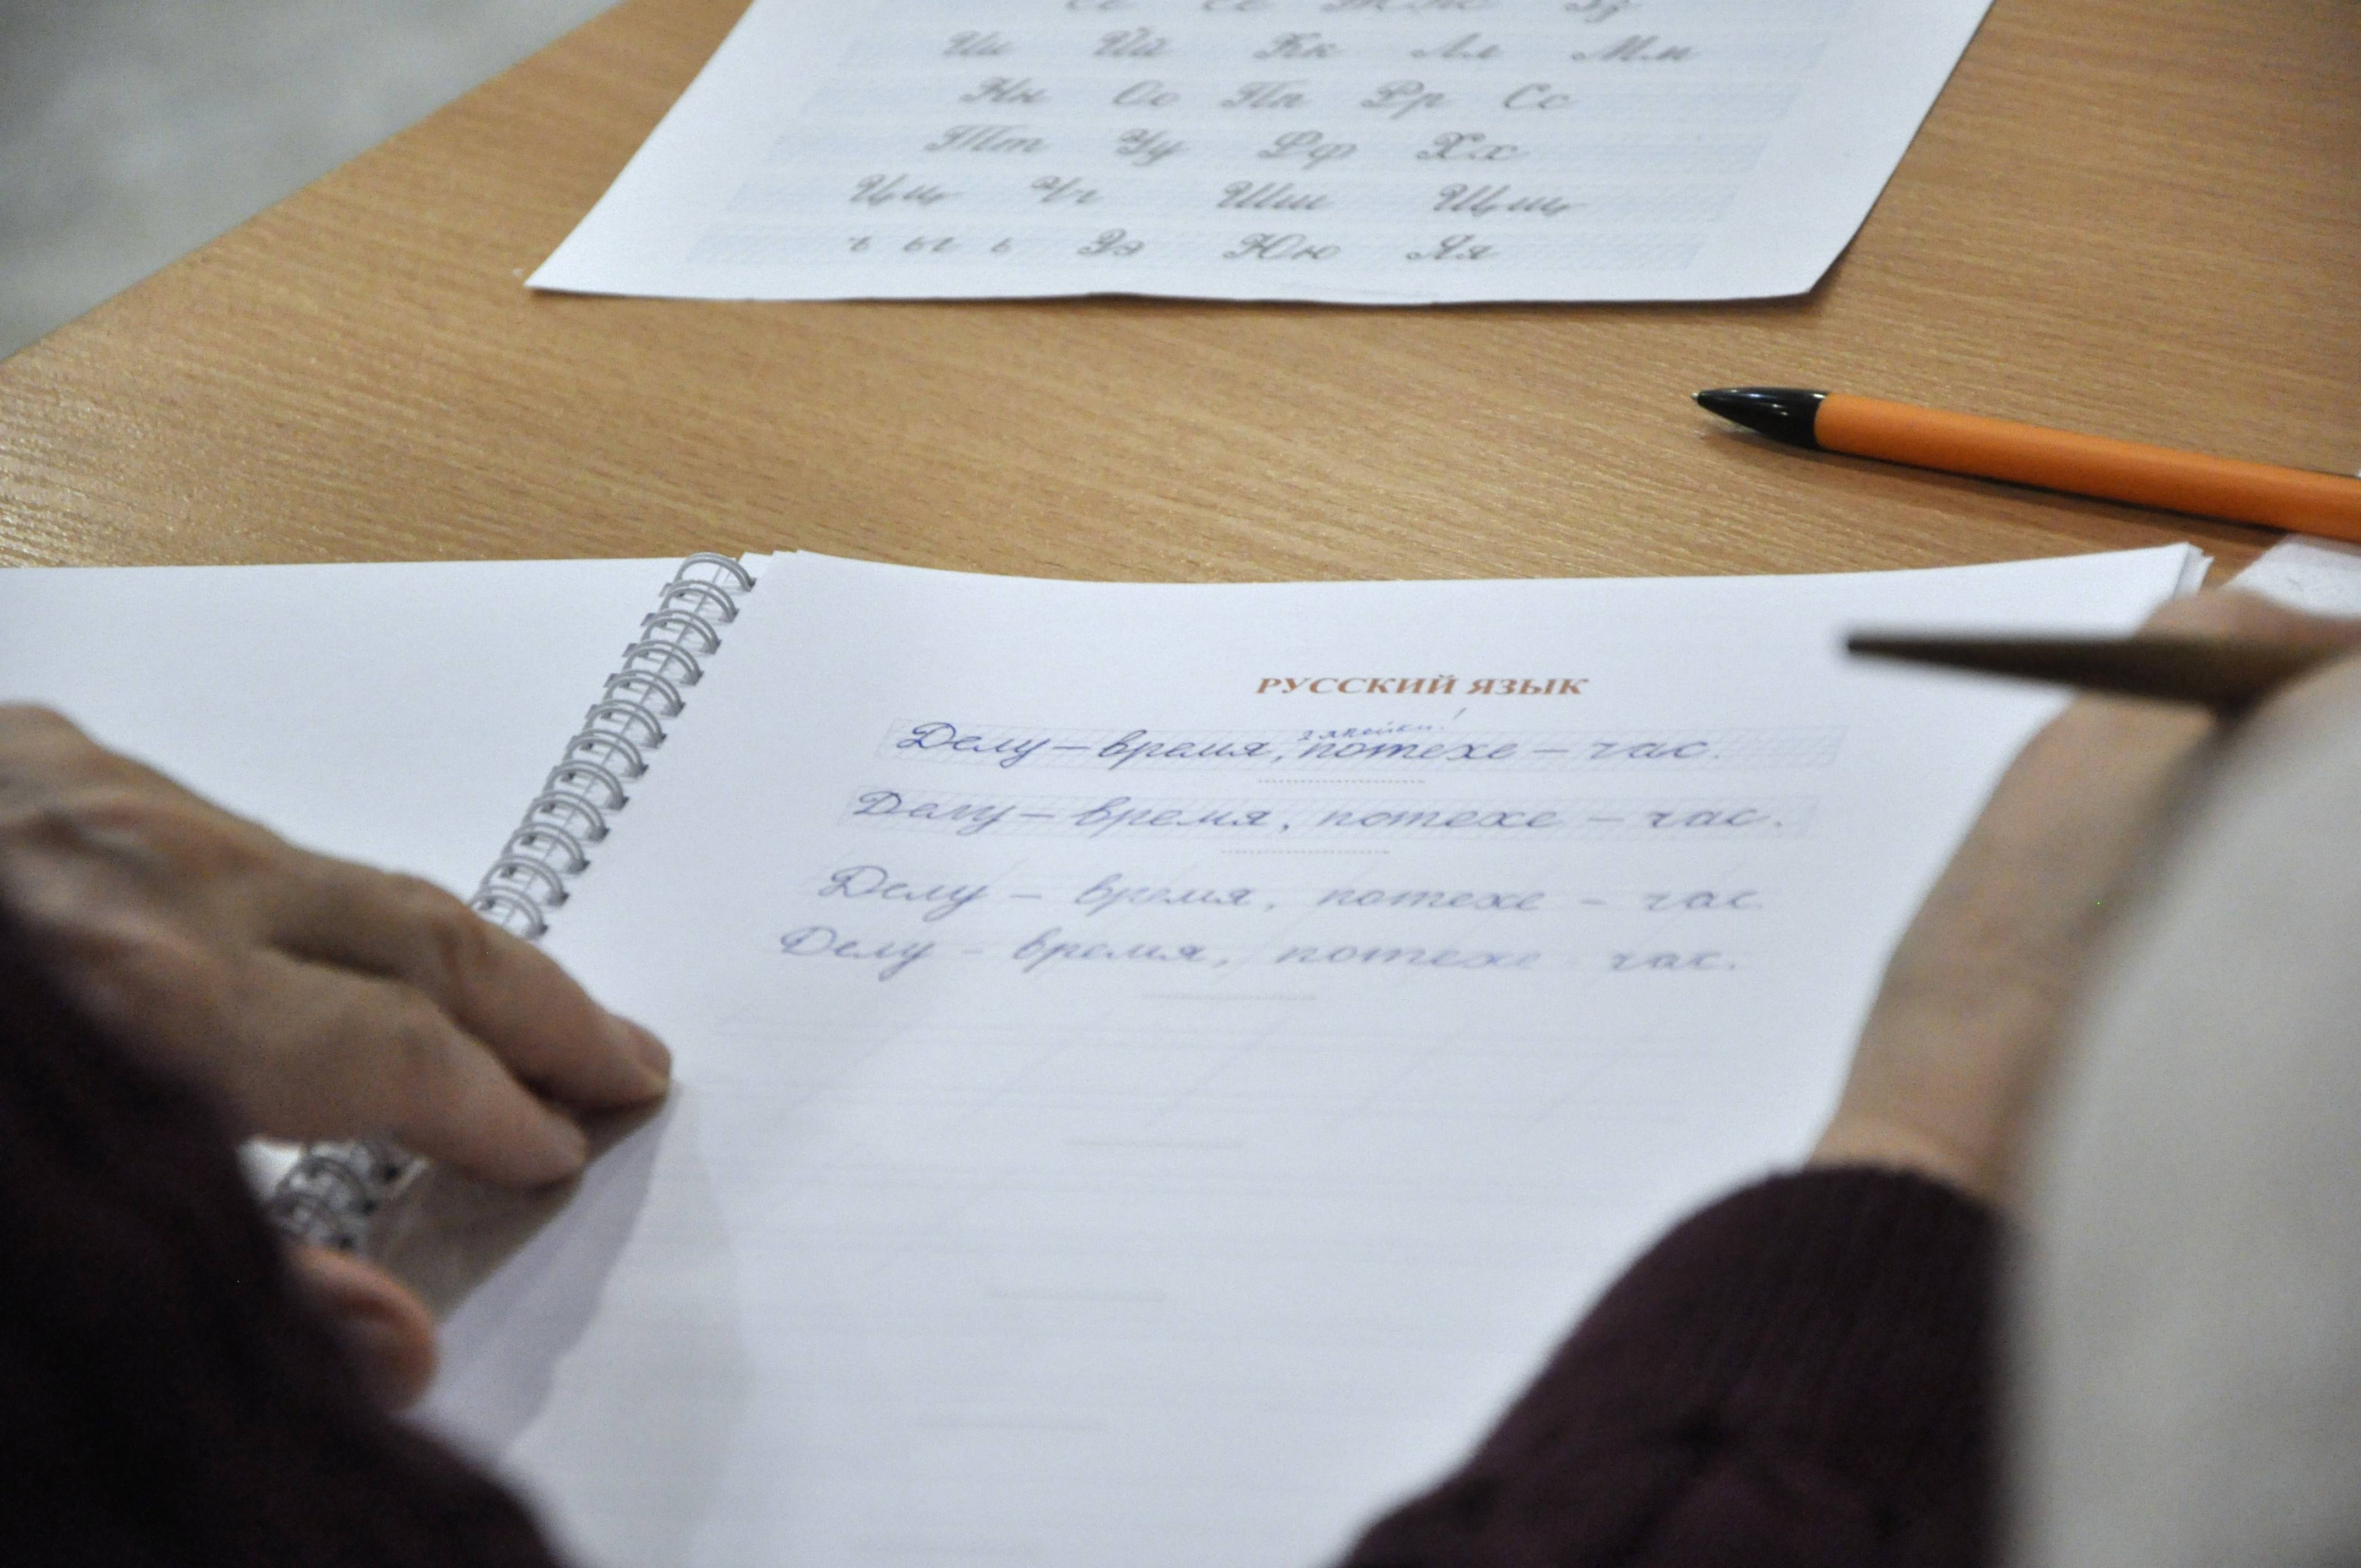 Ии Йй Кк Лл Мм
Нн Оо Пп Рр Сс
Тт Уу Фф Хх
Цц Чч Шш Щщ
ъ ы ь Ээ Юю Яя
РУССКИЙ ЯЗЫК
Делу – время, потехе – час.
Делу – время, потехе – час.
Делу – время, потехе – час.
Делу - время, потехе час.